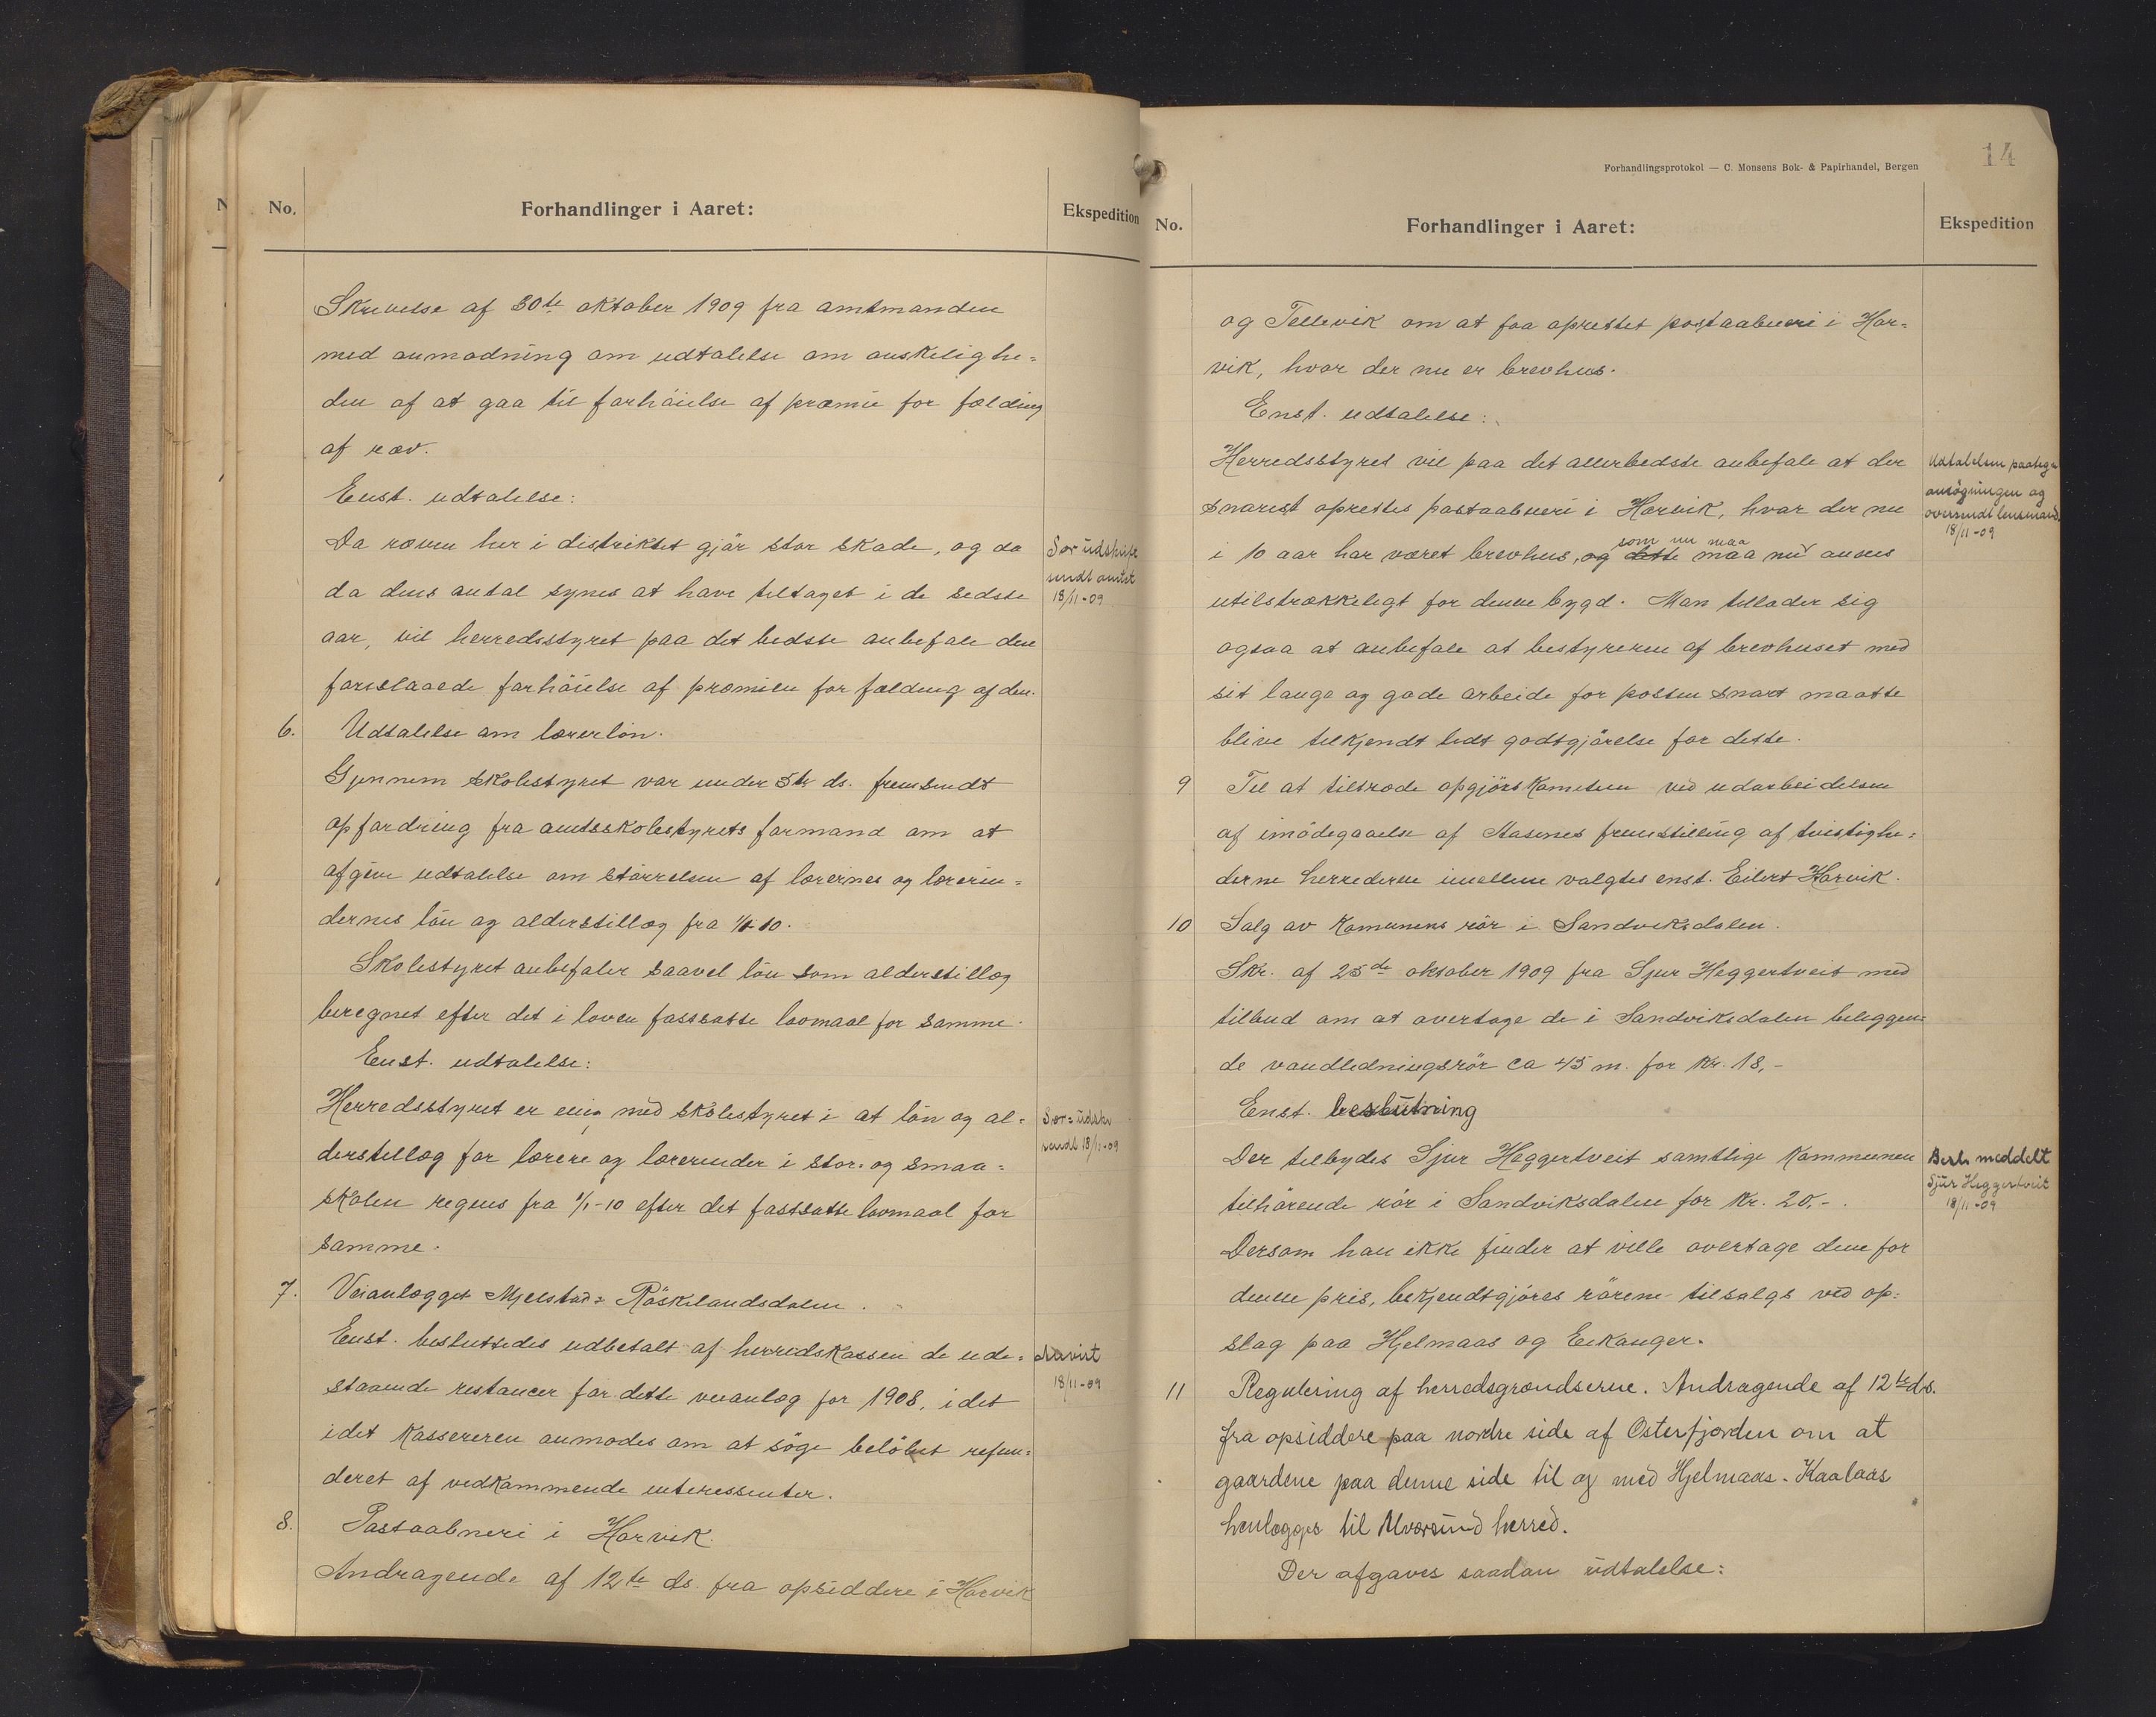 No.
Forhandlinger i Aaret:
Ekspedition
Skrivelse af 30te oktober 1909 fra amtmanden
med anmodning om udtalelse om ønskelighe=
den af at gaa til forhöielse af præmie for fælding
af ræv.
Enst. udtalelse:
Da ræven her i distriktet gjör stor skade, og da
da dens antal synes at have tiltaget i de sedste
aar, vil herredsstyret paa det bedste anbefale den
foreslaaede forhöielse af præmien for fælding af den.
Sær udskrift
sendt amtet
18/11-09
6. Udtalelse om lærerlön.
Gjennem skolestyret var under 5te ds. fremsendt
opfordring fra amtsskolestyrets formand om at
afgive udtalelse om störrelsen af lærernes og lærerin=
dernes lön og alderstillæg fra 1/1-10.
Skolestyret anbefaler saavel lön som alderstillæg
beregnet efter det i loven fastsatte lovmaal for samme.
Enst. udtalelse:
Herredsstyret er enig med skolestyret i at lön og al=
derstillæg for lærere og lærerinder i stor- og smaa=
skolen regnes fra 1/1-10 efter det fastsatte lovmaal for
samme.
Sær=udskr
sendt 18/11-09
7. Veianlægget Mjelstad= Röskelandsdalen.
Enst. besluttedes udbetalt af herredskassen de ude=
staaende restancer for dette veianlæg for 1908, idet
idet kassereren anmodes om at söge belöbet refun=
deret af vedkommende interessenter.
Anvist
18/11-09
8. Postaabneri i Horvik.
Andragende af 12te ds. fra opsiddere i Horvik
Forhandlingsprotokol — C. Monsens Bok- & Papirhandel, Bergen
14
No.
Forhandlinger i Aaret:
Ekspedition
og Tellevik om at faa oprettet postaabneri i Hor=
vik, hvor der nu er brevhus.
Enst. udtalelse:
Herredsstyret vil paa det allerbedste anbefale at der
snarest oprettes postaabneri i Horvik, hvor der nu
som nu maa
i 10 aar har været brevhus, og dette maa nu ansees
utilstrækkeligt for denne bygd. Man tillader sig
ogsaa at anbefale at bestyreren af brevhuset med
sit lange og gode arbeide for posten snart maatte
blive tilkjendt lidt godtgjörelse for dette.
Udtalelsen paateg
ansögningen og
oversendt lensmand.
18/11-09
9 Til at tiltræde opgjörskomiteen ved udarbeidelsen
af imödegaaelse af Aasenes fremstilling af tvistighe=
derne herrederne imellem valgtes enst. Eilert Horvik.
10 Salg av komunens rör i Sandviksdalen.
Skr. af 25de oktober 1909 fra Sjur Heggertveit med
tilbud om at overtage de i Sandviksdalen beliggen=
de vandledningsrör ca 45 m. for Kr. 18,-
Enst. beslutning
Der tilbydes Sjur Heggertveit samtlige kommunen
tilhörende rör i Sandviksdalen for Kr. 20,-.
Dersom han ikke finder at ville overtage dem for
denne pris, bekjendtgjöres rörene tilsalgs ved op=
slag paa Hjelmaas og Eikanger.
Besl. meddelt
Sjur Heggertveit
18/11-09
11 Regulering af herredsgrændserne. Andragende af 12te ds.
fra opsiddere paa nordre side af Osterfjorden om at
gaardene paa denne side til og med Hjelmaas - Kaalaas
henlægges til Alversund herred.
Der afgaves saadan udtalelse: